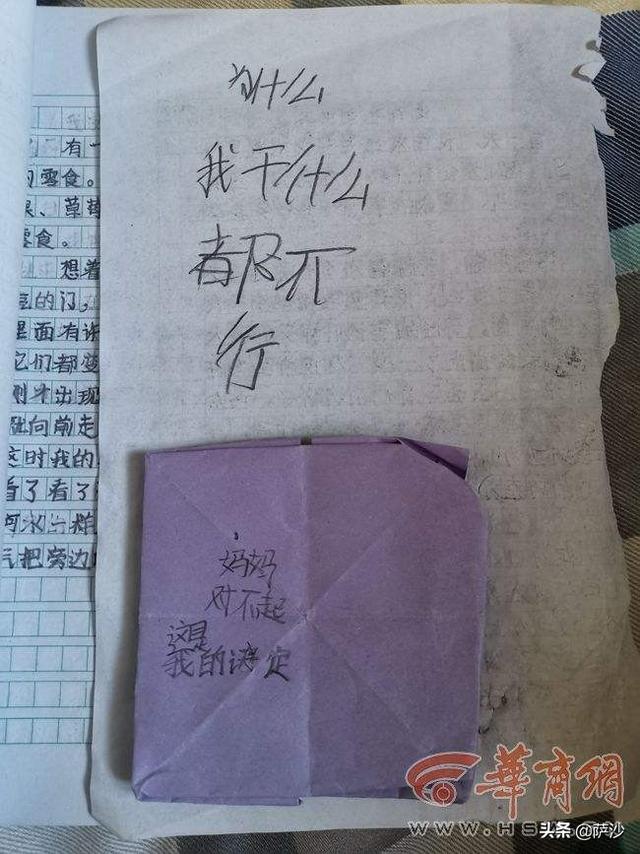 为什么
我干什么
都不
行
妈妈
对不起
这是
我的决定
有一
的零食。
果、草莓
零食。
想着
的门,
里面有许
它们都变
刚才出现
向前走
这时我的
看了看了
河水
气把旁边
华商网
www.hs
头条@萨沙